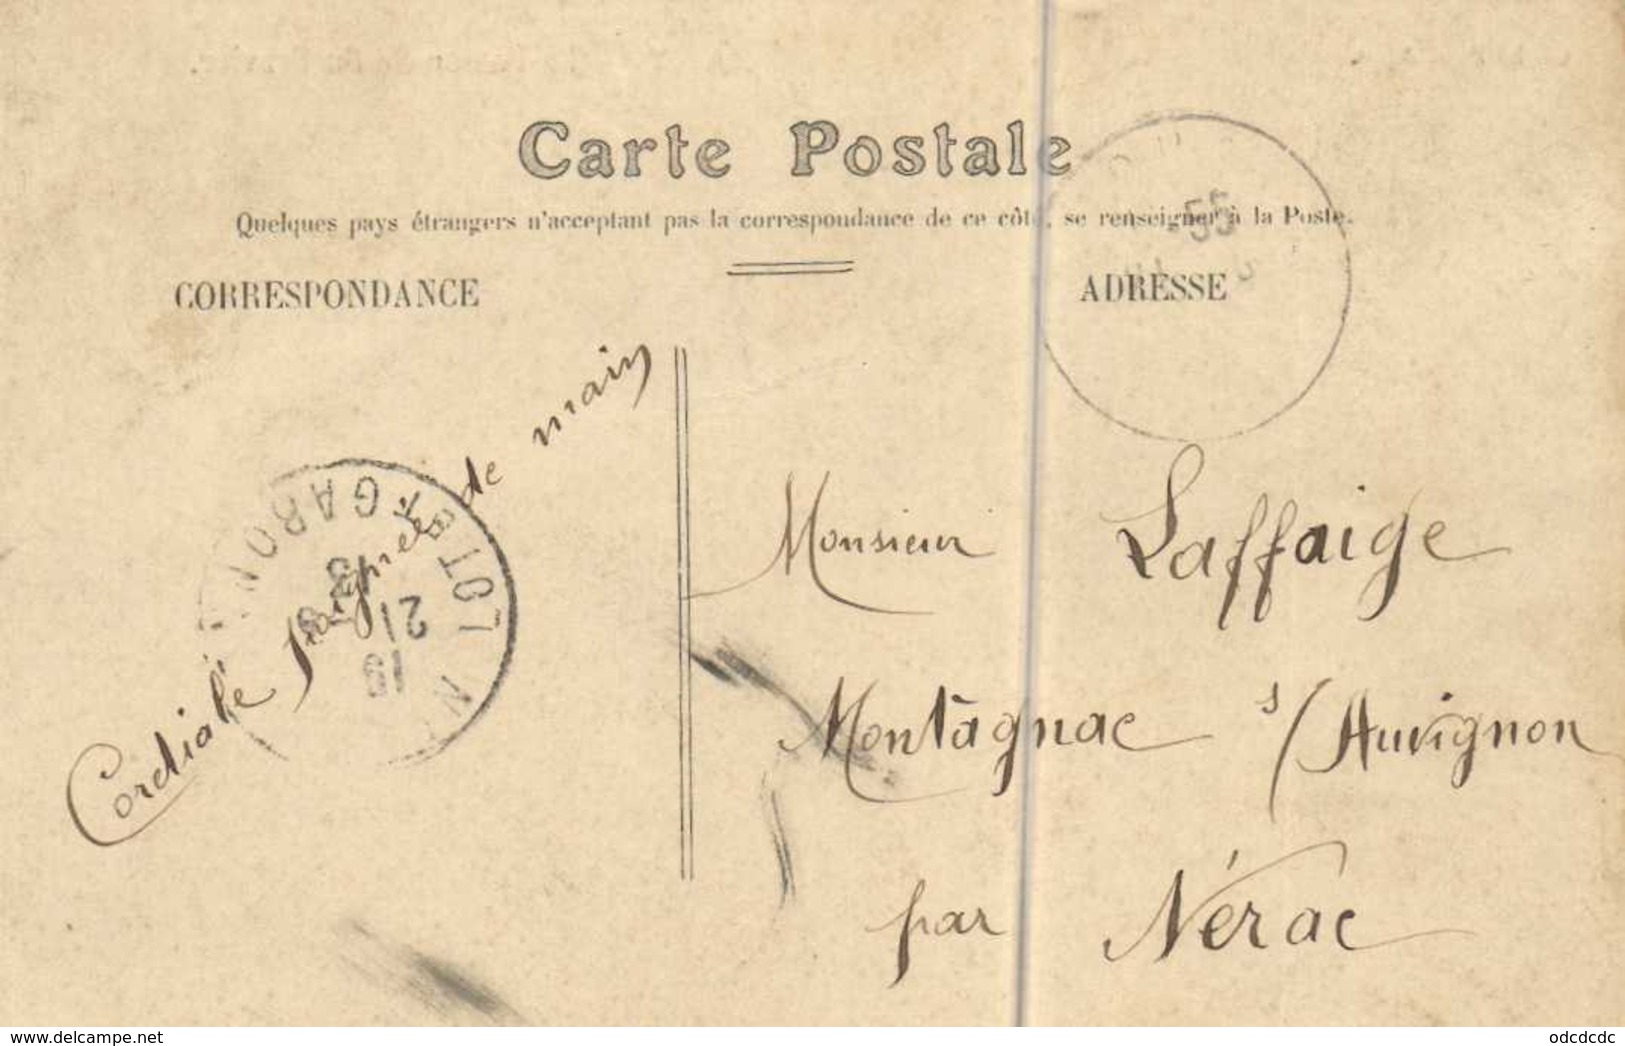 Carte Postale
Quelques pays étrangers n'acceptent pas la correspondance de ce côté, se renseigner à la Poste.
CORRESPONDANCE
ADRESSE
55
Cordiale poignée de main
LOT
GARONN
21
19
Monsieur Laffaige
Montagnac s/ Auvignon
par Nérac
www.delcampe.net
odcdcdc